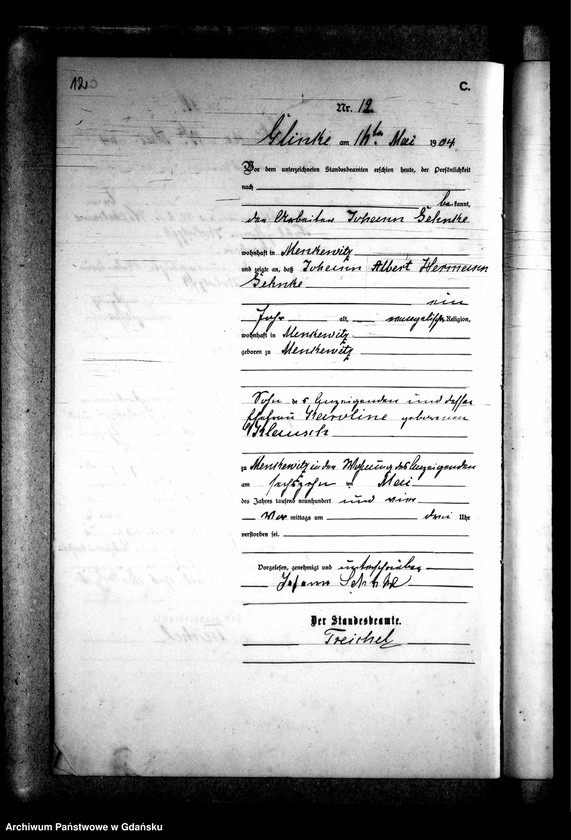 12
C.
Nr. 12.
Glinke am 16ten Mai 1904
Vor dem unterzeichneten Standesbeamten erschien heute, der Persönlichkeit
nach
bekannt,
der Arbeiter Johann Gehnke
wohnhaft in Menkewitz
und zeigte an, daß Johann Albert Hermann
Gehnke
ein
Jahr alt, evangelischer Religion,
wohnhaft in Menkewitz
geboren zu Menkewitz
Sohn des Anzeigenden und dessen
Ehefrau Karoline geborenen
zu Menkewitz in der Wohnung des Anzeigenden
am sechszehn ten Mai
des Jahres tausend neunhundert und vier
Vor mittags um drei Uhr
verstorben sei.
Vorgelesen, genehmigt und unterschrieben
Johann
Der Standesbeamte.
Treichel
Archiwum Państwowe w Gdańsku